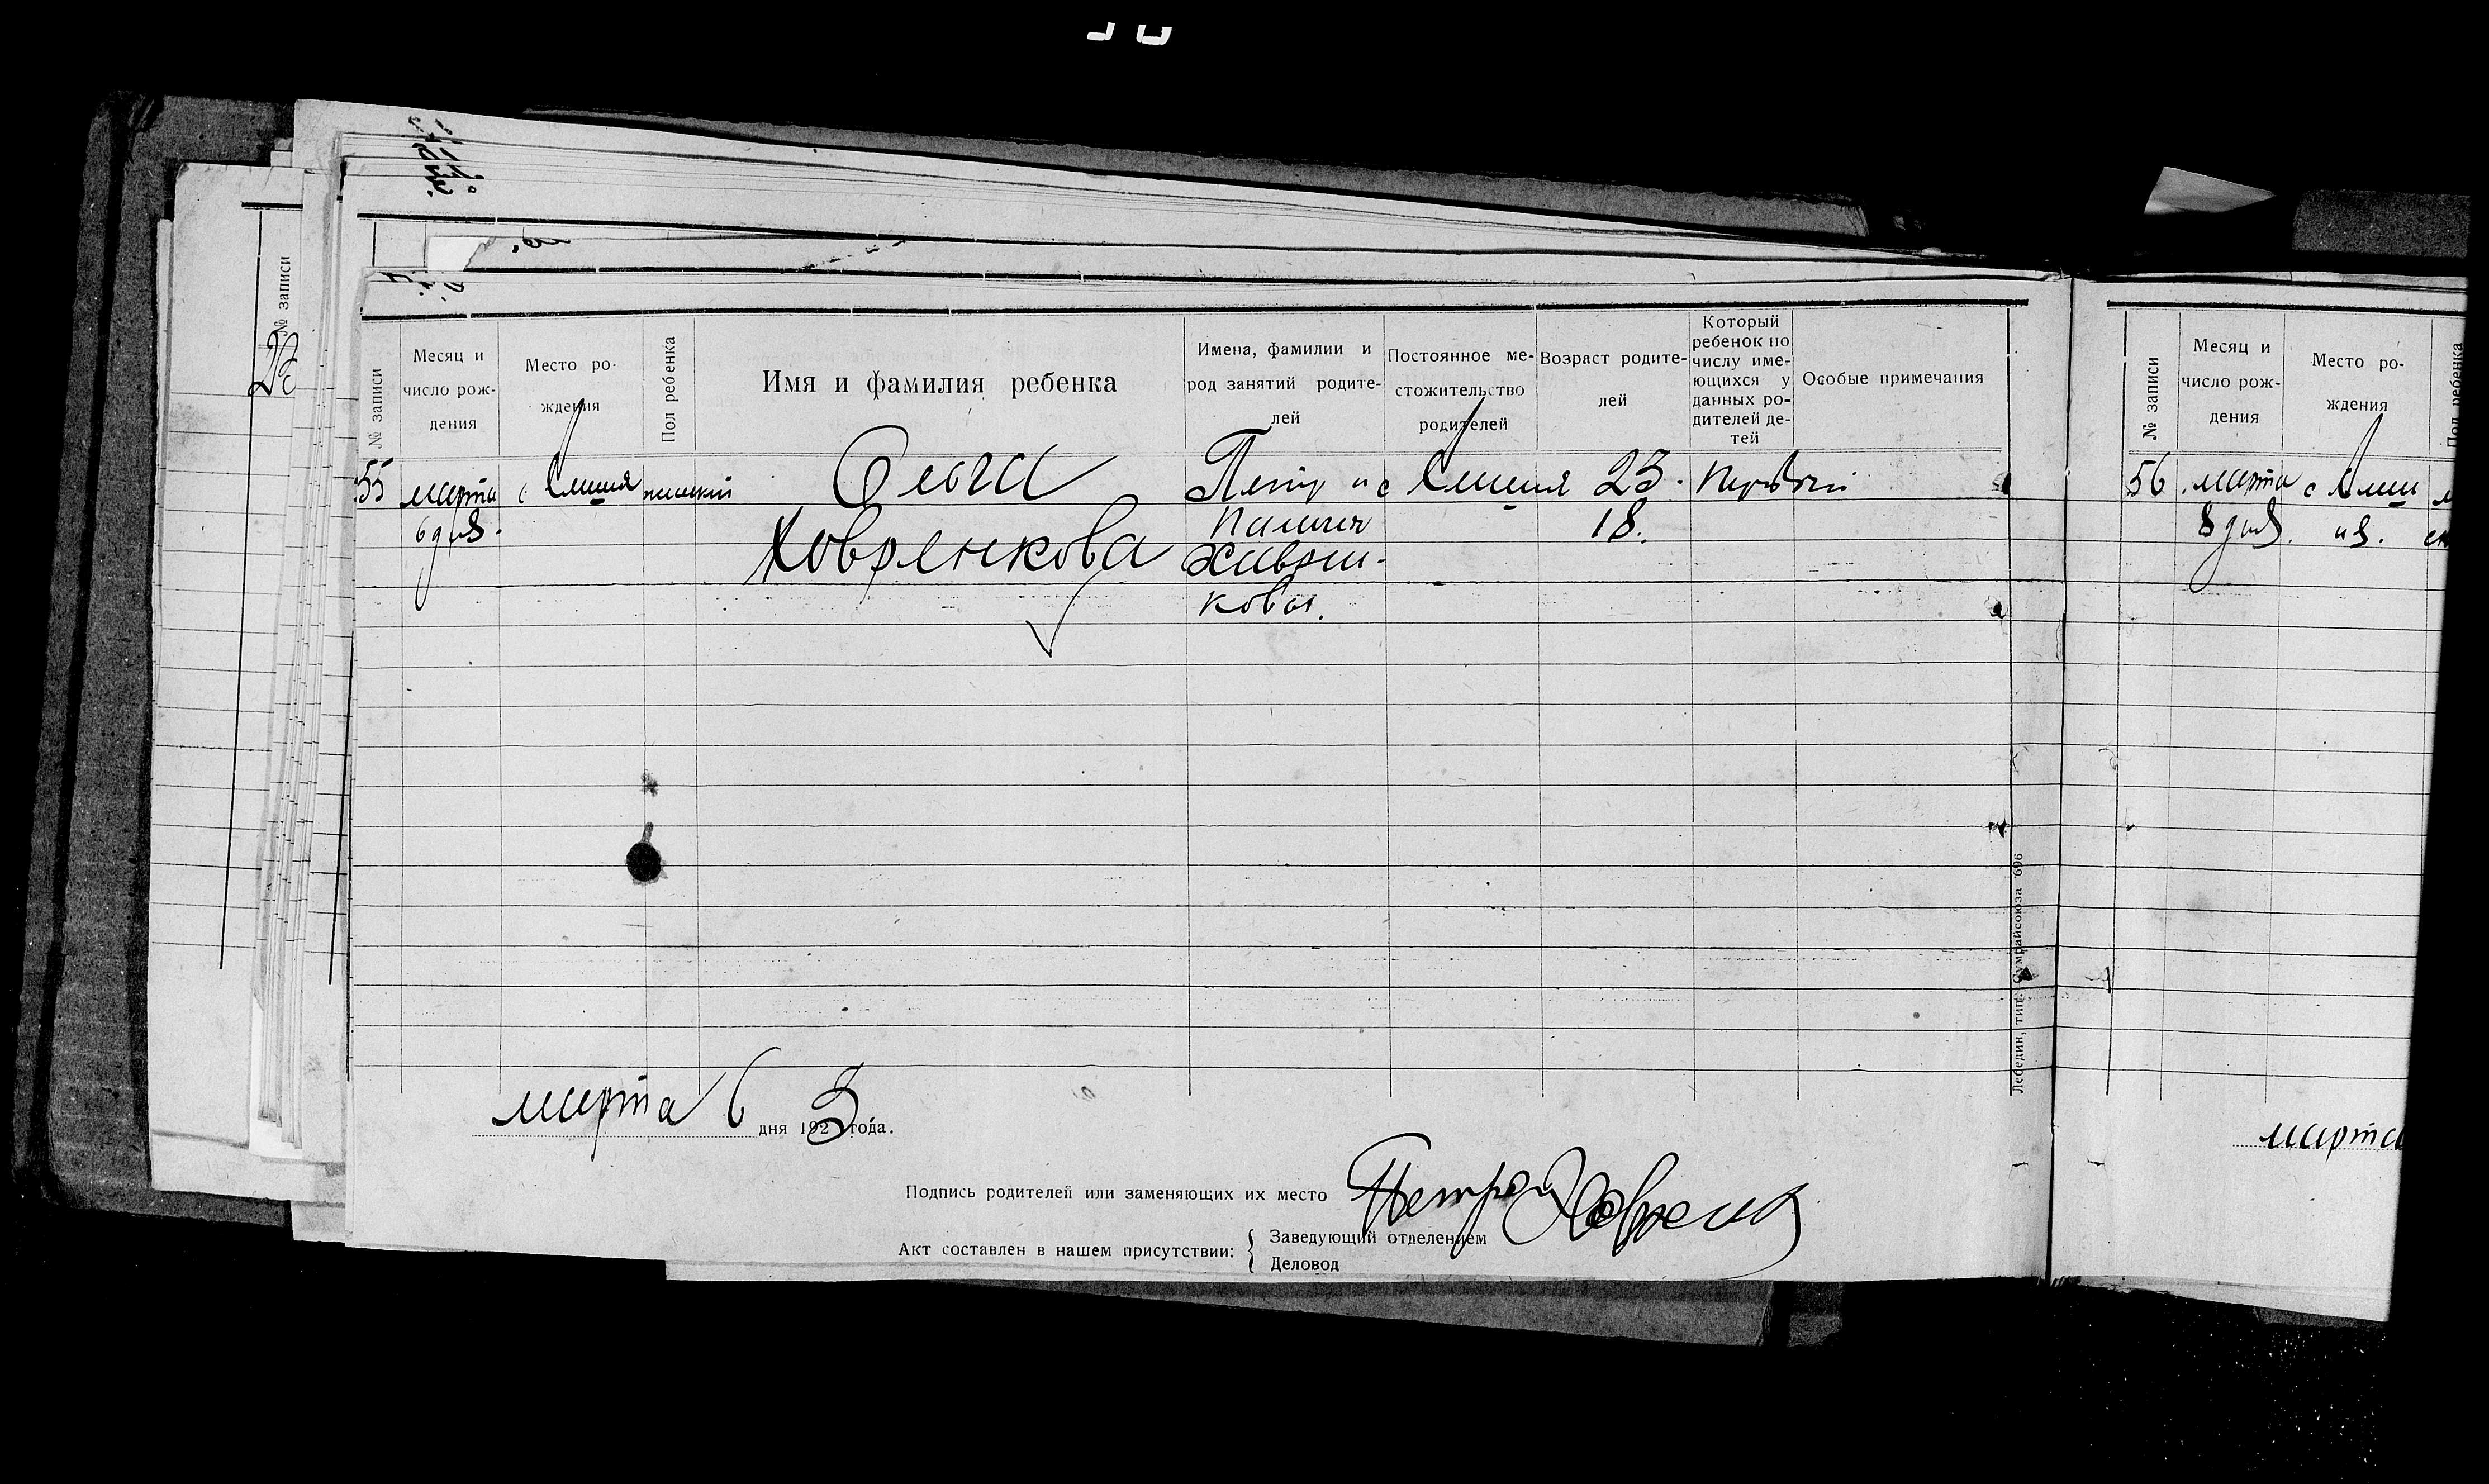 № записи
Месяц и число рождения
Место рождения
Пол ребенка
Имя и фамилия ребенка
Имена, фамилии и род занятий родителей
Постоянное местожительство родителей
Возраст родителей
Который ребенок по числу имеющихся у данных родителей детей
Особые примечания
55
марта
6 дня.
женский
Ольга
Ховренкова
Петр и
ковы.
23.
18.
первый
марта 6 дня 1923 года.
Подпись родителей или заменяющих их место Петро
Акт составлен в нашем присутствии:
Заведующий отделением
Деловод
Лебедин, тип. Сумрайсоюза 696
№ записи
Месяц и число рождения
Место рождения
Пол ребенка
56
марта
8 дня.
марта
№ записи